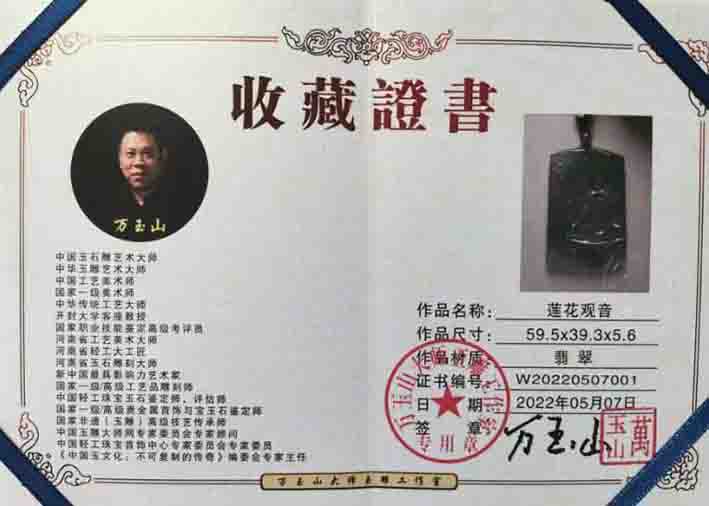 收藏證書
万玉山
中国玉石雕艺术大师
中华玉雕艺术大师
中国工艺美术师
国家一级美术师
中华传统工艺大师
开封大学客座教授
国家职业技能鉴定高级考评员
河南省工艺美术大师
河南省轻工大工匠
河南省玉石雕刻大师
新中国最具影响力艺术家
国家一级/高级工艺品雕刻师
中国轻工珠宝玉石鉴定师、评估师
国家一级/高级贵金属首饰与宝玉石鉴定师
国家非遗（玉雕）高级技艺传承师
中国玉雕大师网专家委员会专家顾问
中国轻工珠宝首饰中心专家委员会专家委员
《中国玉文化：不可复制的传奇》编委会专家主任
作品名称：莲花观音
作品尺寸：59.5x39.3x5.6
作品材质：翡翠
证书编号：W20220507001
日期 2022年05月07日
签章 万玉山
萬玉山
专用章
万玉山大师玉雕工作室